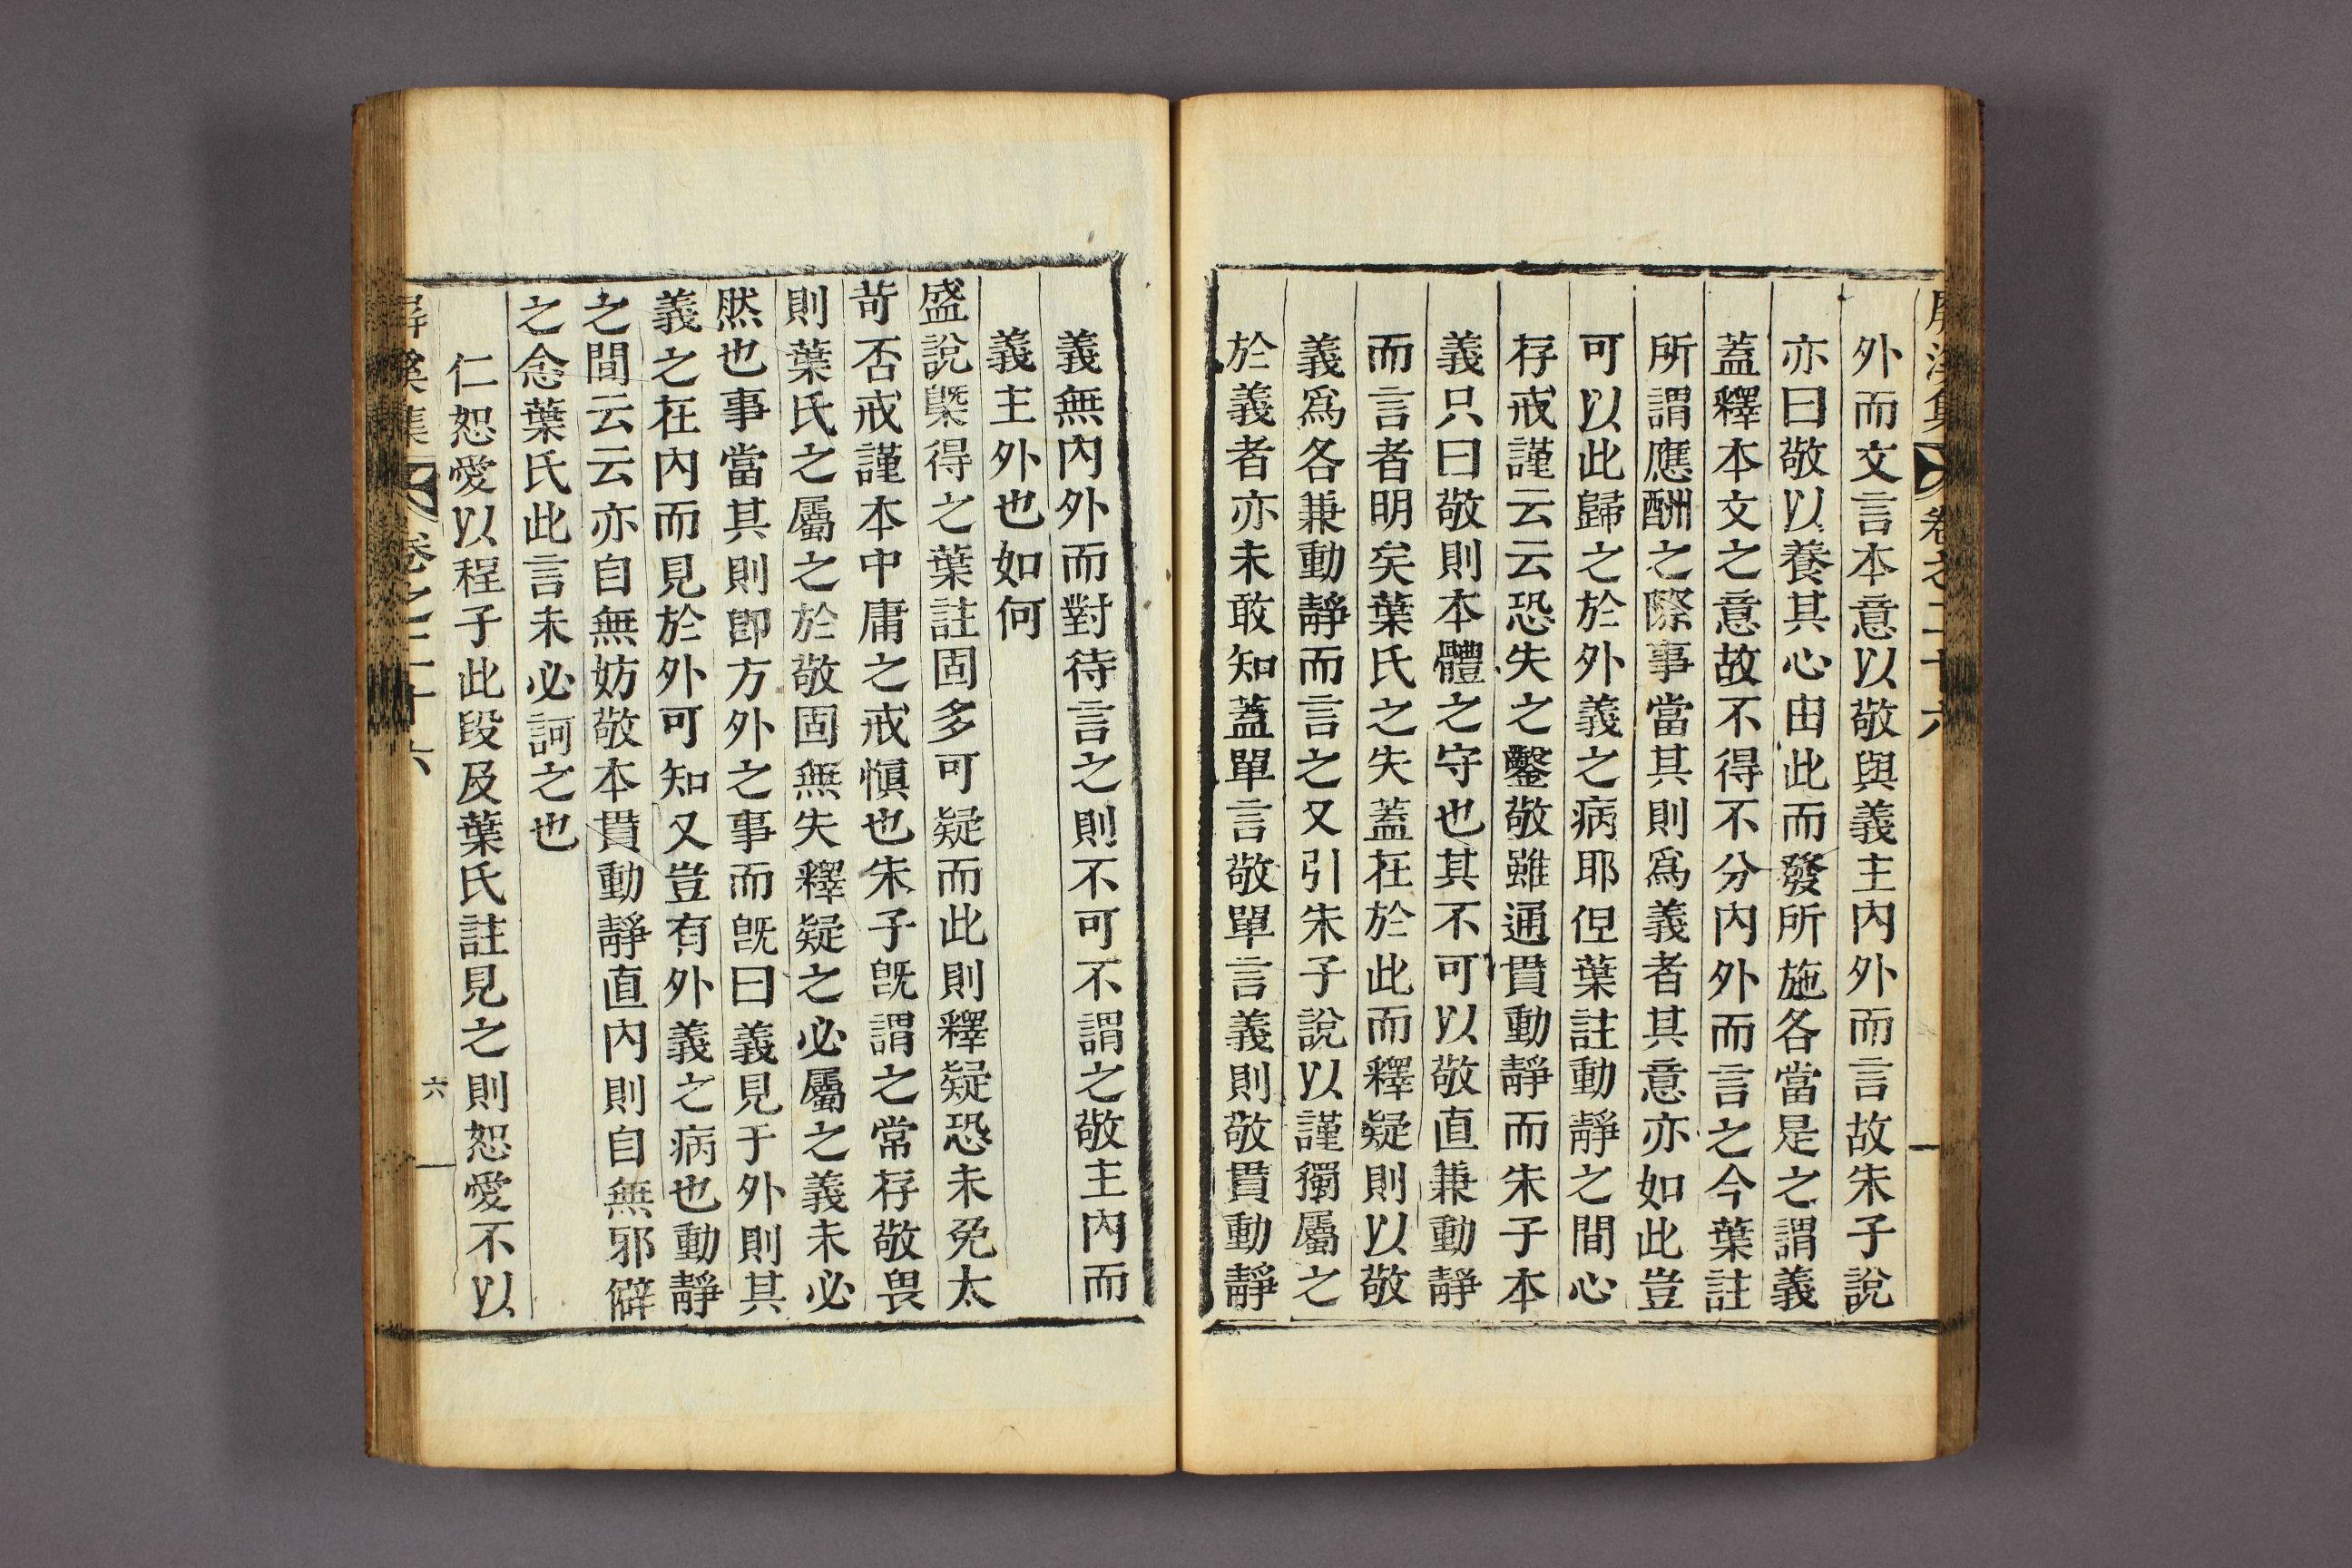 屏溪集 卷之二十六
外而文言本意以敬與義主內外而言故朱子說
亦曰敬以養其心由此而發所施各當是之謂義
蓋釋本文之意故不得不分內外而言之今葉註
所謂應酬之際事當其則爲義者其意亦如此豈
可以此歸之於外義之病耶但葉註動靜之間心
存戒謹云云恐失之鑿敬雖通貫動靜而朱子本
義只曰敬則本體之守也其不可以敬直兼動靜
而言者明矣葉氏之失蓋在於此而釋疑則以敬
義爲各兼動靜而言之又引朱子說以謹獨屬之
於義者亦未敢知蓋單言敬單言義則敬貫動靜
義無內外而對待言之則不可不謂之敬主內而
義主外也如何
盛說槩得之葉註固多可疑而此則釋疑恐未免太
苛否戒謹本中庸之戒愼也朱子旣謂之常存敬畏
則葉氏之屬之於敬固無失釋疑之必屬之義未必
然也事當其則卽方外之事而旣曰義見于外則其
義之在內而見於外可知又豈有外義之病也動靜
之間云云亦自無妨敬本貫動靜直內則自無邪僻
之念葉氏此言未必訶之也
仁恕愛以程子此段及葉氏註見之則恕愛不以
屏溪集 卷之二十六 六